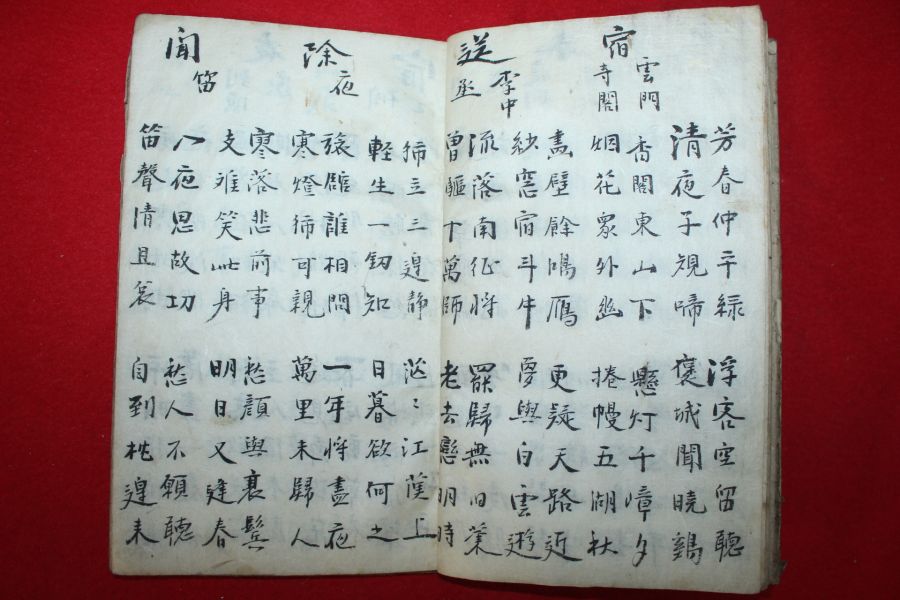 芳春仲平緑 浮客空留聽
清夜子規啼 褒城聞曉鷄
宿雲門寺閣
香閣東山下 懸灯千嶂夕
烟花象外幽 捲幔五湖秋
畵壁餘鴻鴈 更疑天路近
紗窓宿斗牛 夢與白雲遊
送李中丞
流落南征将 罷歸無旧業
曽驅十萬師 老去戀明時
獨立三邉静 茫〻江漢上
軽生一釼知 日暮欲何之
除夜
旅舘誰相問 一年将盡夜
寒燈獨可親 萬里未歸人
寥落悲前事 愁顔與衰鬂
支難笑此身 明日又逢春
聞笛
入夜思故切 愁人不願聽
笛聲清且哀 自到枕邉来